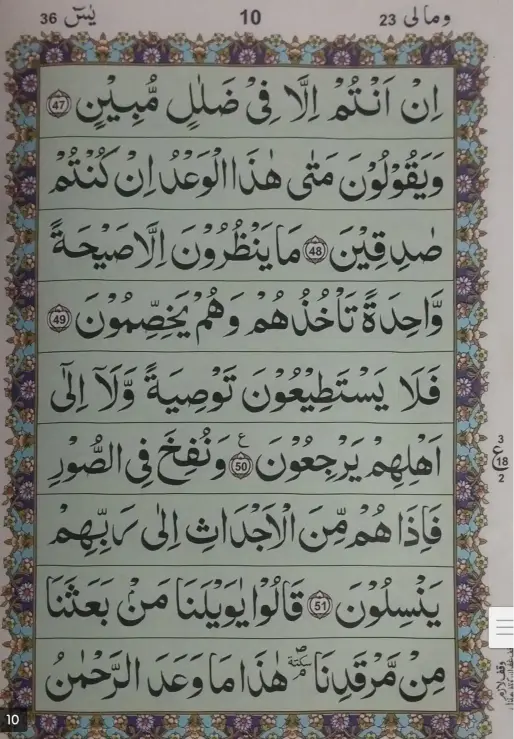 وما لی 23 10 یٰسٓ 36
اِنْ اَنْتُمْ اِلَّا فِیْ ضَلٰلٍ مُّبِیْنٍ 47
وَیَقُوْلُوْنَ مَتٰی هٰذَا الْوَعْدُ اِنْ كُنْتُمْ
صٰدِقِیْنَ 48 مَا یَنْظُرُوْنَ اِلَّا صَیْحَةً
وَّاحِدَةً تَاْخُذُهُمْ وَهُمْ یَخِصِّمُوْنَ 49
فَلَا یَسْتَطِیْعُوْنَ تَوْصِیَةً وَّلَآ اِلٰٓی
اَهْلِهِمْ یَرْجِعُوْنَ 50 ع وَنُفِخَ فِی الصُّوْرِ
3 ع 18 2
فَاِذَا هُمْ مِّنَ الْاَجْدَاثِ اِلٰی رَبِّهِمْ
یَنْسِلُوْنَ 51 قَالُوْا یٰوَیْلَنَا مَنْۢ بَعَثَنَا
مِنْ مَّرْقَدِنَا ۘ سكتة هٰذَا مَا وَعَدَ الرَّحْمٰنُ
وقف لازم
10